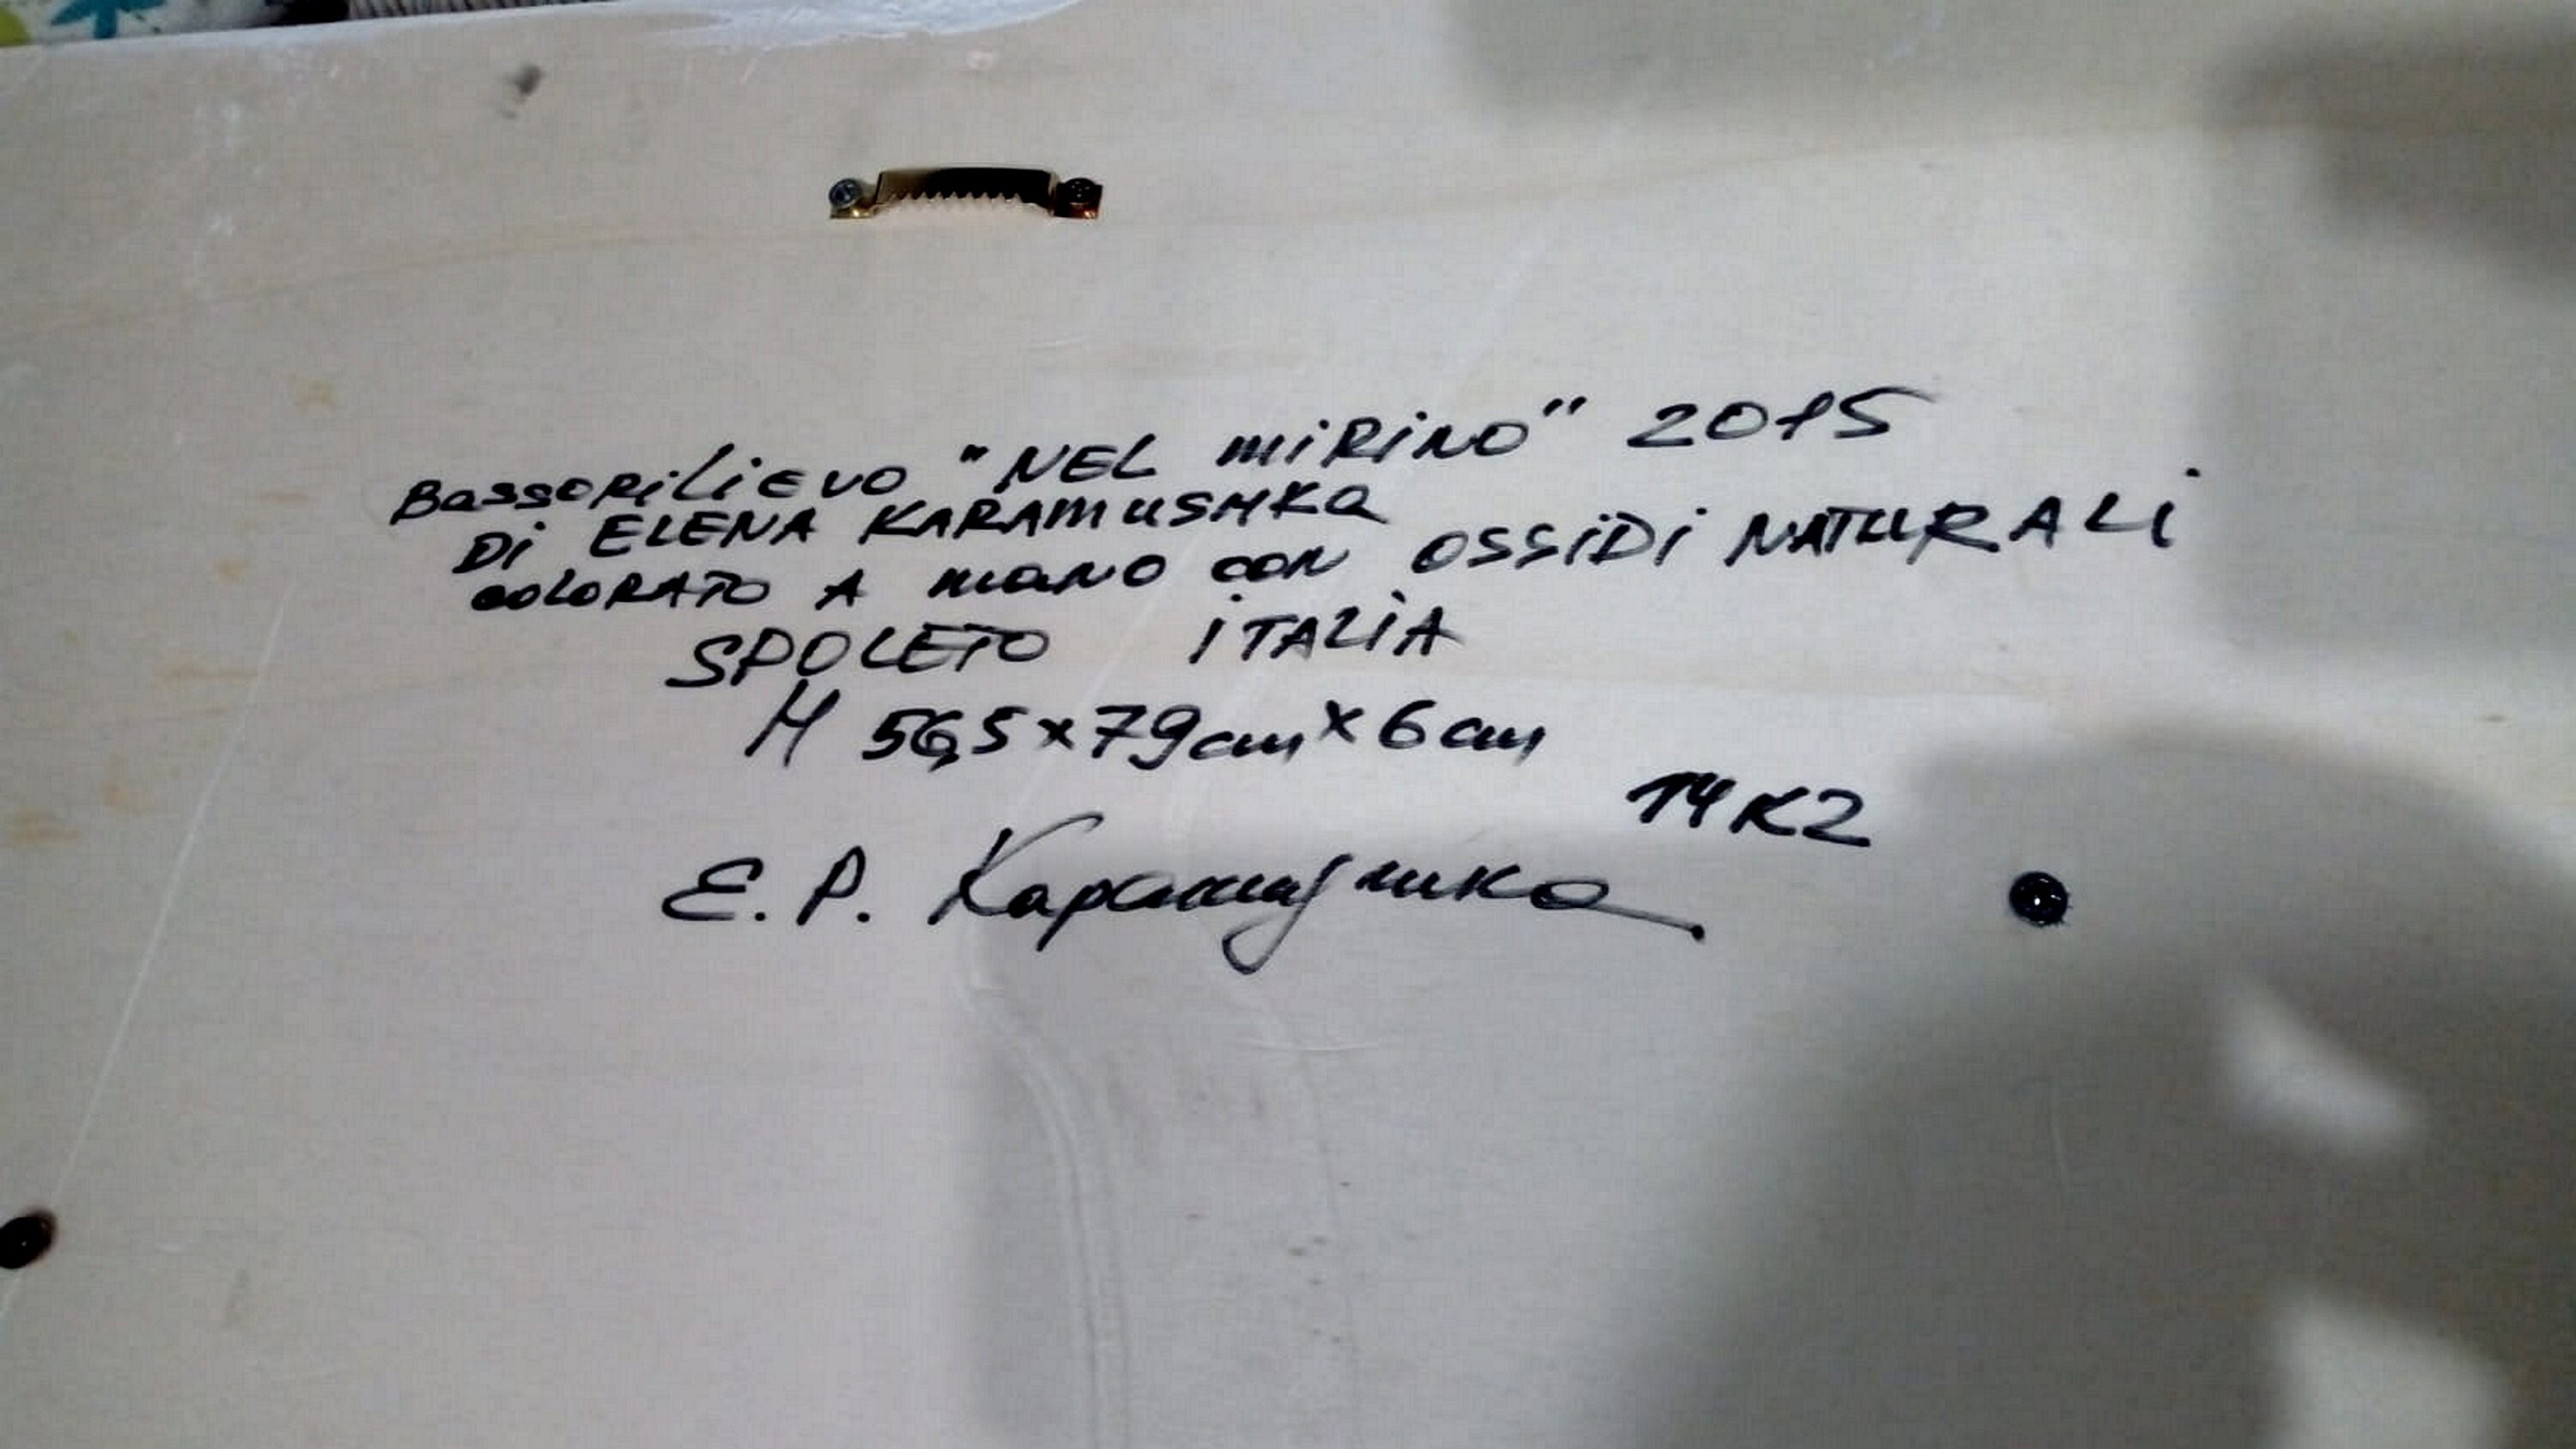 Bassorilievo "NEL MIRINO" 2015
Di ELENA KARAMUSHKa
COLORATO A MANO CON OSSiDi NATURALi
SPOLETO iTALiA
H 56,5x79cm x 6cm
14K2
Е.Р. Карамушка